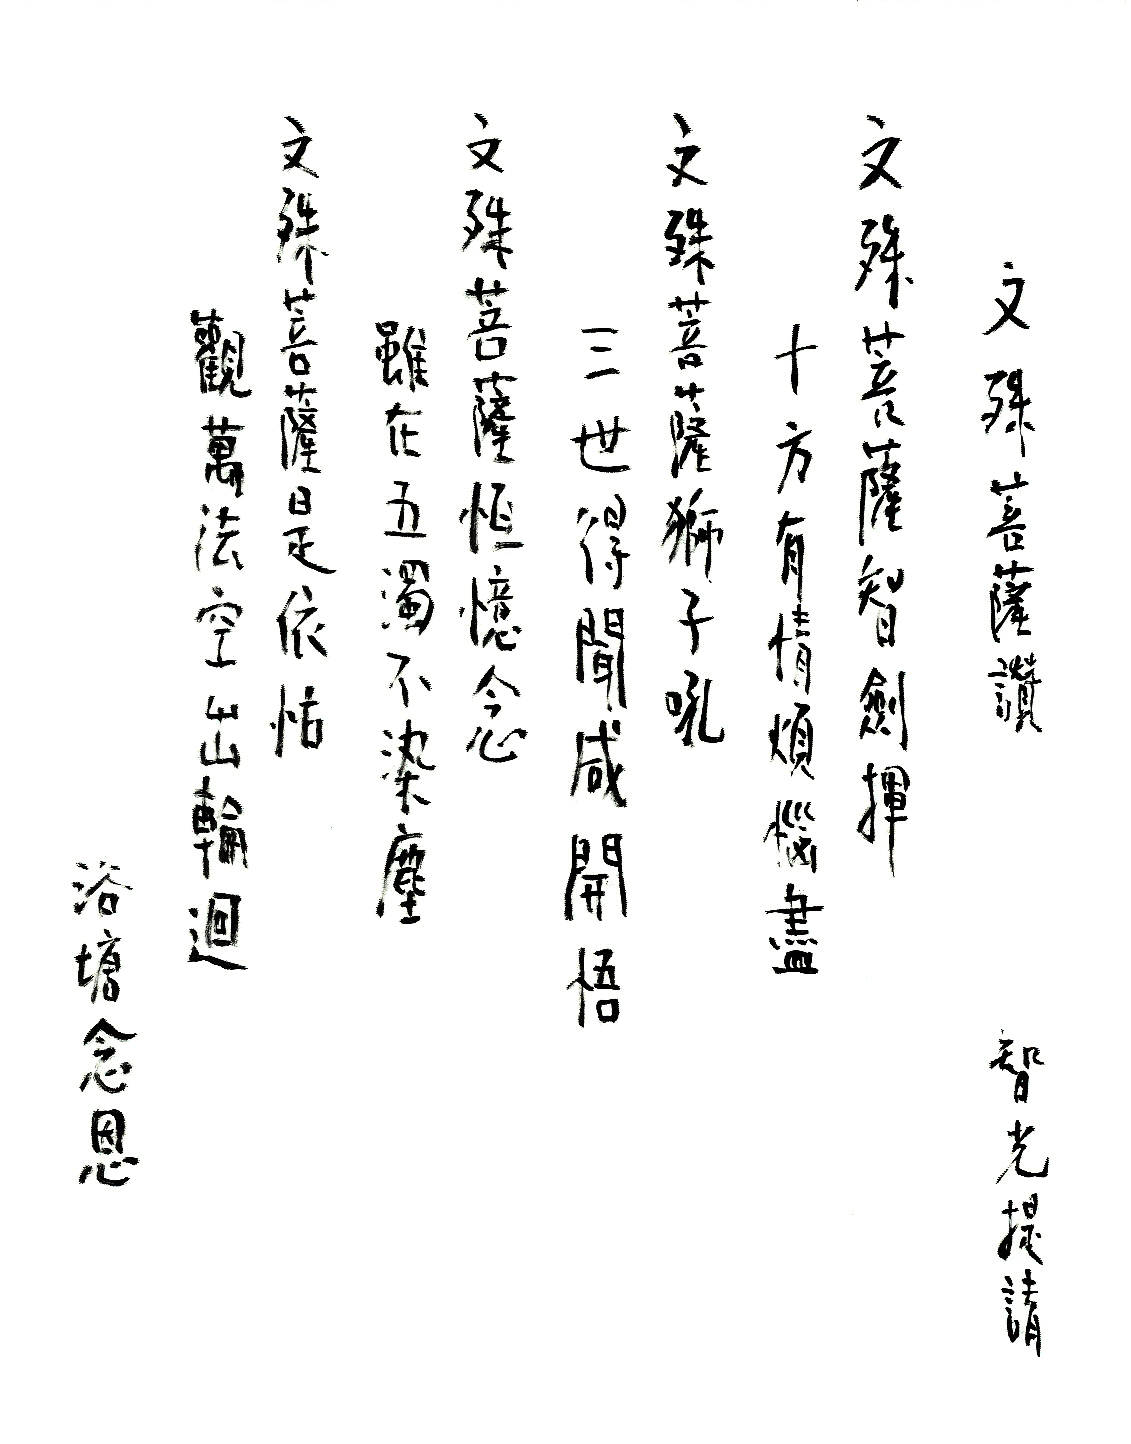 文殊菩薩讚
智光提請
文殊菩薩智劍揮
十方有情煩惱盡
文殊菩薩獅子吼
三世得聞咸開悟
文殊菩薩恒憶念
雖在五濁不染塵
文殊菩薩是依怙
觀萬法空出輪迴
浴塘念恩